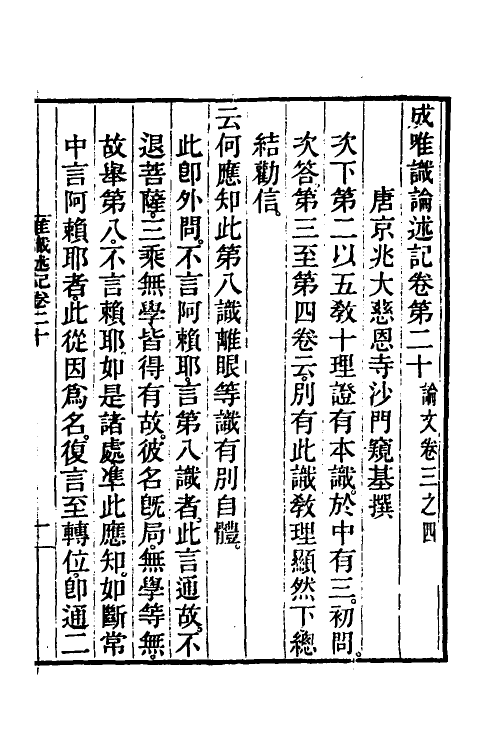 成唯識論述記卷第二十 論文卷三之四
唐京兆大慈恩寺沙門窺基撰
次下第二以五教十理證有本識。於中有三。初問。
次答。第三至第四卷云。別有此識教理顯然下。總
結勸信。
云何應知此第八識離眼等識有別自體。
此卽外問。不言阿賴耶。言第八識者。此言通故。不
退菩薩。三乘無學皆得有故。彼名旣局。無學等無。
故舉第八。不言賴耶。如是諸處準此應知。如斷常
中言阿賴耶者。此從因爲名。復言至轉位。卽通二
唯識述記卷二十 一